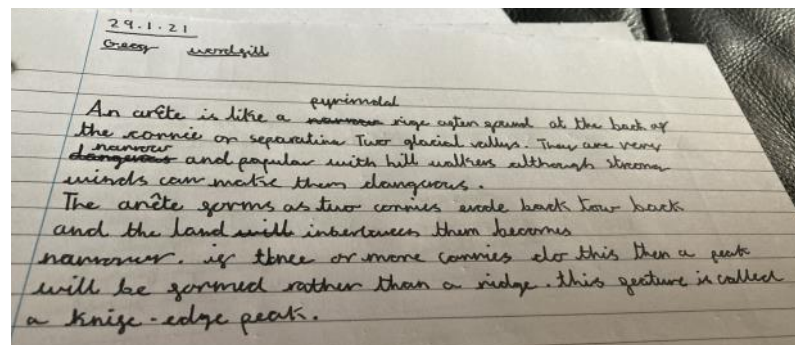 29.1.21
wordfill
pyrimdal
An arête is like a narrow rige often found at the back of
the corrie or separatine Two glacial vallys. They are very
narrow
dangerous and popular with hill walkers although strong
winds can make them dangerous.
The arête forms as two corries erode back tow back
and the land will inbertween them becomes
narrower. if three or more corries do this then a peak
will be formed rather than a ridge. this feature is called
a knife-edge peak.